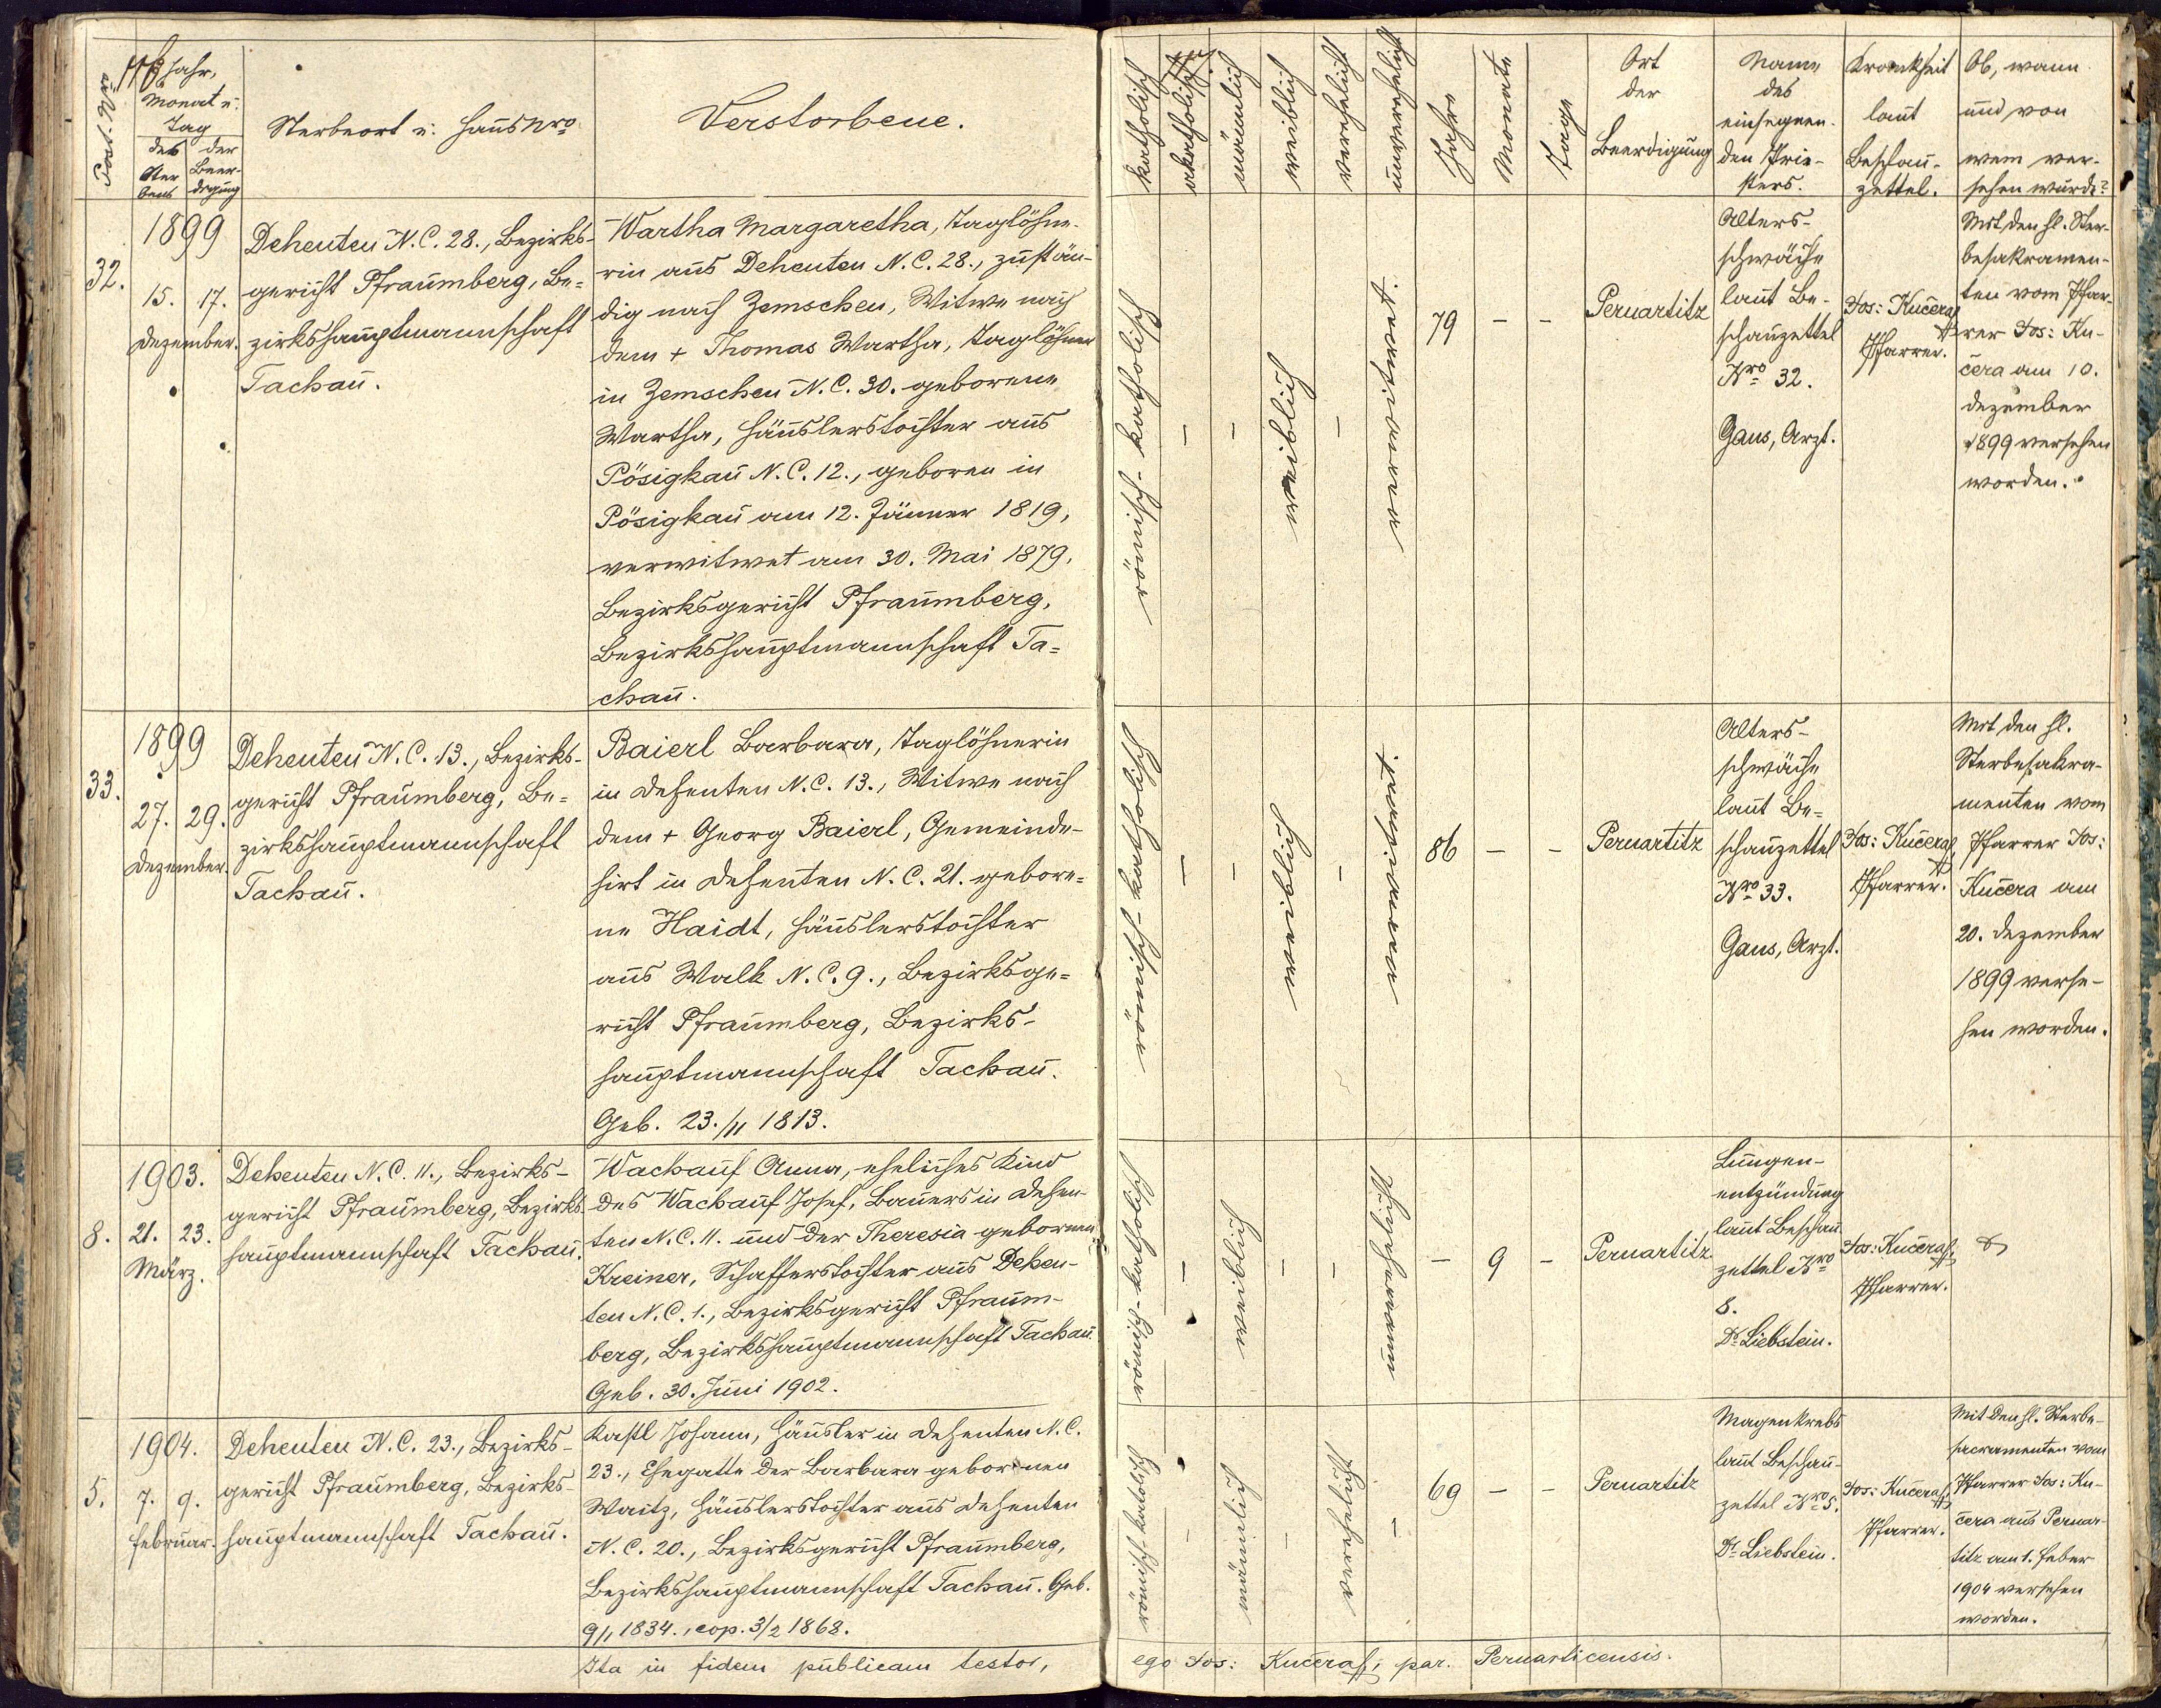 Post. Nro
Jahr,
Monat u.
Tag
des Ster-
bens
der Beer-
digung
Sterbeort u. Haus Nro
Verstorbene.
katholisch
akatholisch
männlich
weiblich
verehelicht
unverehelicht
Jahre
Monate
Tage
Ort
der
Beerdigung
Name
des
einsegnen-
den Prie-
sters.
Krankheit
laut
Beschau-
zettel.
Ob, wann
und von
wem ver-
sehen wurde?
32.
1899
15. 17.
Dezember.
Dehenten N. C. 28., Bezirks-
gericht Pfraumberg, Be-
zirkshauptmannschaft
Tachau.
Wartha Margaretha, Taglöhne-
rin aus Dehenten N. C. 28., zustän-
dig nach Zemschen, Witwe nach
dem + Thomas Wartha, Taglöhner
in Zemschen N. C. 30. geborene
Wartha, Häuslerstochter aus
Pösigkau N. C. 12., geboren in
Pösigkau am 12. Jänner 1819,
verwitwet am 30. Mai 1879,
Bezirksgericht Pfraumberg,
Bezirkshauptmannschaft Ta-
chau.
römisch-katholisch
–
–
weiblich
–
verwitwet.
79
–
–
Pernartitz
Alters-
schwäche
laut Be-
schauzettel
Nro 32.
Gans, Arzt.
Jos: Kučera
Pfarrer.
Mit den hl. Ster-
besakramen-
ten vom Pfar-
rer Jos: Ku-
čera am 10.
Dezember
1899 versehen
worden.
33.
1899
27. 29.
Dezember.
Dehenten N. C. 13., Bezirks-
gericht Pfraumberg, Be-
zirkshauptmannschaft
Tachau.
Baierl Barbara, Taglöhnerin
in Dehenten N. C. 13., Witwe nach
dem + Georg Baierl, Gemeinde-
hirt in Dehenten N. C. 21. gebore-
ne Haidt, Häuslerstochter
aus Walk N. C. 9., Bezirksge-
richt Pfraumberg, Bezirks-
hauptmannschaft Tachau.
Geb. 23./11 1813.
römisch-katholisch
–
–
weiblich
–
verwitwet.
86
–
–
Pernartitz
Alters-
schwäche
laut Be-
schauzettel
Nro 33.
Gans, Arzt.
Jos: Kučera
Pfarrer.
Mit den hl.
Sterbesakra-
menten vom
Pfarrer Jos:
Kučera am
20. Dezember
1899 verse-
hen worden.
8.
1903.
21. 23.
März.
Dehenten N. C. 11., Bezirks-
gericht Pfraumberg, Bezirks-
hauptmannschaft Tachau.
Wachauf Anna, eheliches Kind
des Wachauf Josef, Bauers in Dehen-
ten N. C. 11. und der Theresia gebornen
Kreiner, Schafferstochter aus Dehen-
ten N. C. 1., Bezirksgericht Pfraum-
berg, Bezirkshauptmannschaft Tachau.
Geb. 30. Juni 1902.
römisch-katholisch
–
weiblich
–
–
unverehelicht
–
9
–
Pernartitz
Lungen-
entzündung
laut Beschau-
zettel Nro
8.
Dr Liebstein.
Jos: Kučera
Pfarrer.
5.
1904.
7. 9.
Februar.
Dehenten N. C. 23., Bezirks-
gericht Pfraumberg, Bezirks-
hauptmannschaft Tachau.
Kastl Johann, Häusler in Dehenten N. C.
23., Ehegatte der Barbara gebornen
Waritz, Häuslerstochter aus Dehenten
N. C. 20., Bezirksgericht Pfraumberg,
Bezirkshauptmannschaft Tachau. Geb.
9/1 1834., cop. 3/2 1868.
römisch-katolisch
–
männlich
–
verehelicht
–
69
–
–
Pernartitz
Magenkrebs
laut Beschau-
zettel Nro 5.
Dr Liebstein.
Jos: Kučera
Pfarrer.
Mit den hl. Sterbe-
sacramenten vom
Pfarrer Jos: Ku-
čera aus Pernar-
titz am 1. Feber
1904 versehen
worden.
Ita in fidem publicam testor, ego Jos: Kučera, par. Pernarticensis.